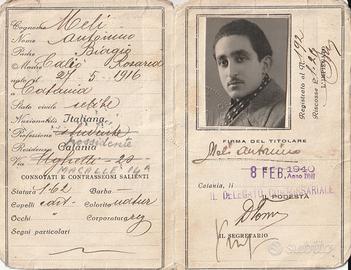 Cognome Meli
Nome Antonino
Padre Biagio
Madre Calì Rosaria
nato il 27 5 1916
a Catania
Stato civile celibe
Nazionalità Italiana
Professione studente
possidente
Residenza Catania
Via
CONNOTATI E CONTRASSEGNI SALIENTI
Statura 1,62 Barba -
Capelli cast. Colorito natur
Occhi " Corporatura reg
Segni particolari
Registrato al N. 192
Riscosse L.
L'IMPIEGATO
FIRMA DEL TITOLARE
Meli Antonino
Catania, li 8 FEB 1940
Anno XVIII
IL DELEGATO PODESTARIALE
IL PODESTÀ
IL SEGRETARIO
subito